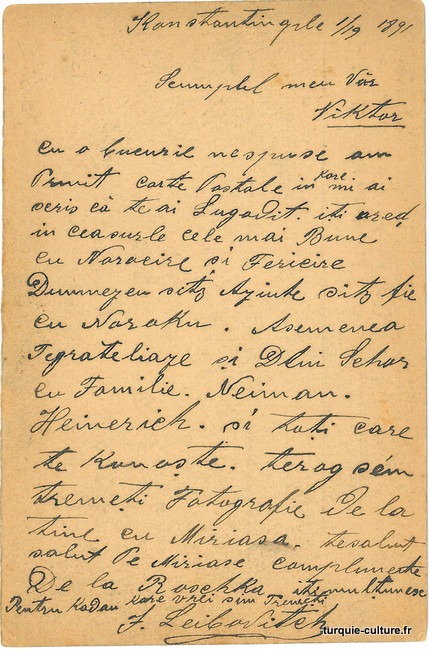 Konstantinople 1/19 1891
Scumptel meu Văr
Viktor
cu o bucuril nespuse am
Primit carte Postale in Kare mi ai
scris că te ai Lugodit. iti ureq
in ceasurle cele mai Bune
cu Norocire si Fericire
Dumnezeu sitz Ajute sitz fie
cu Noroku. Asemenea
Tegrateliaze si Dlui Schor
cu Familie. Neiman.
Heinerich. si toti care
te Kunoste. terog sém
tremeti Fotografie De la
tine cu Miriasa. tesalut
salut Pe Miriase complimente
De la Roschka iti multumesc
Pentru Kadau Kare vrei sim Tremeti
J. Leibovitch
turquie-culture.fr